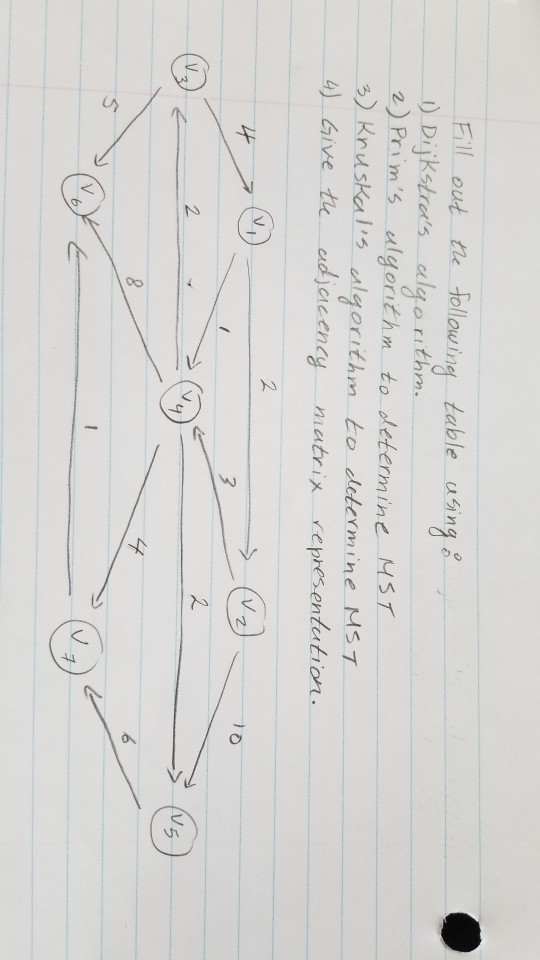 Fill out the following table using:
1) Dijkstra's algorithm.
2) Prim's algorithm to determine MST
3) Kruskal's algorithm to determine MST
4) Give the adjacency matrix representation.
2
V1
V2
4
1
3
10
V3
2
V4
2
V5
5
8
4
6
V6
1
V7